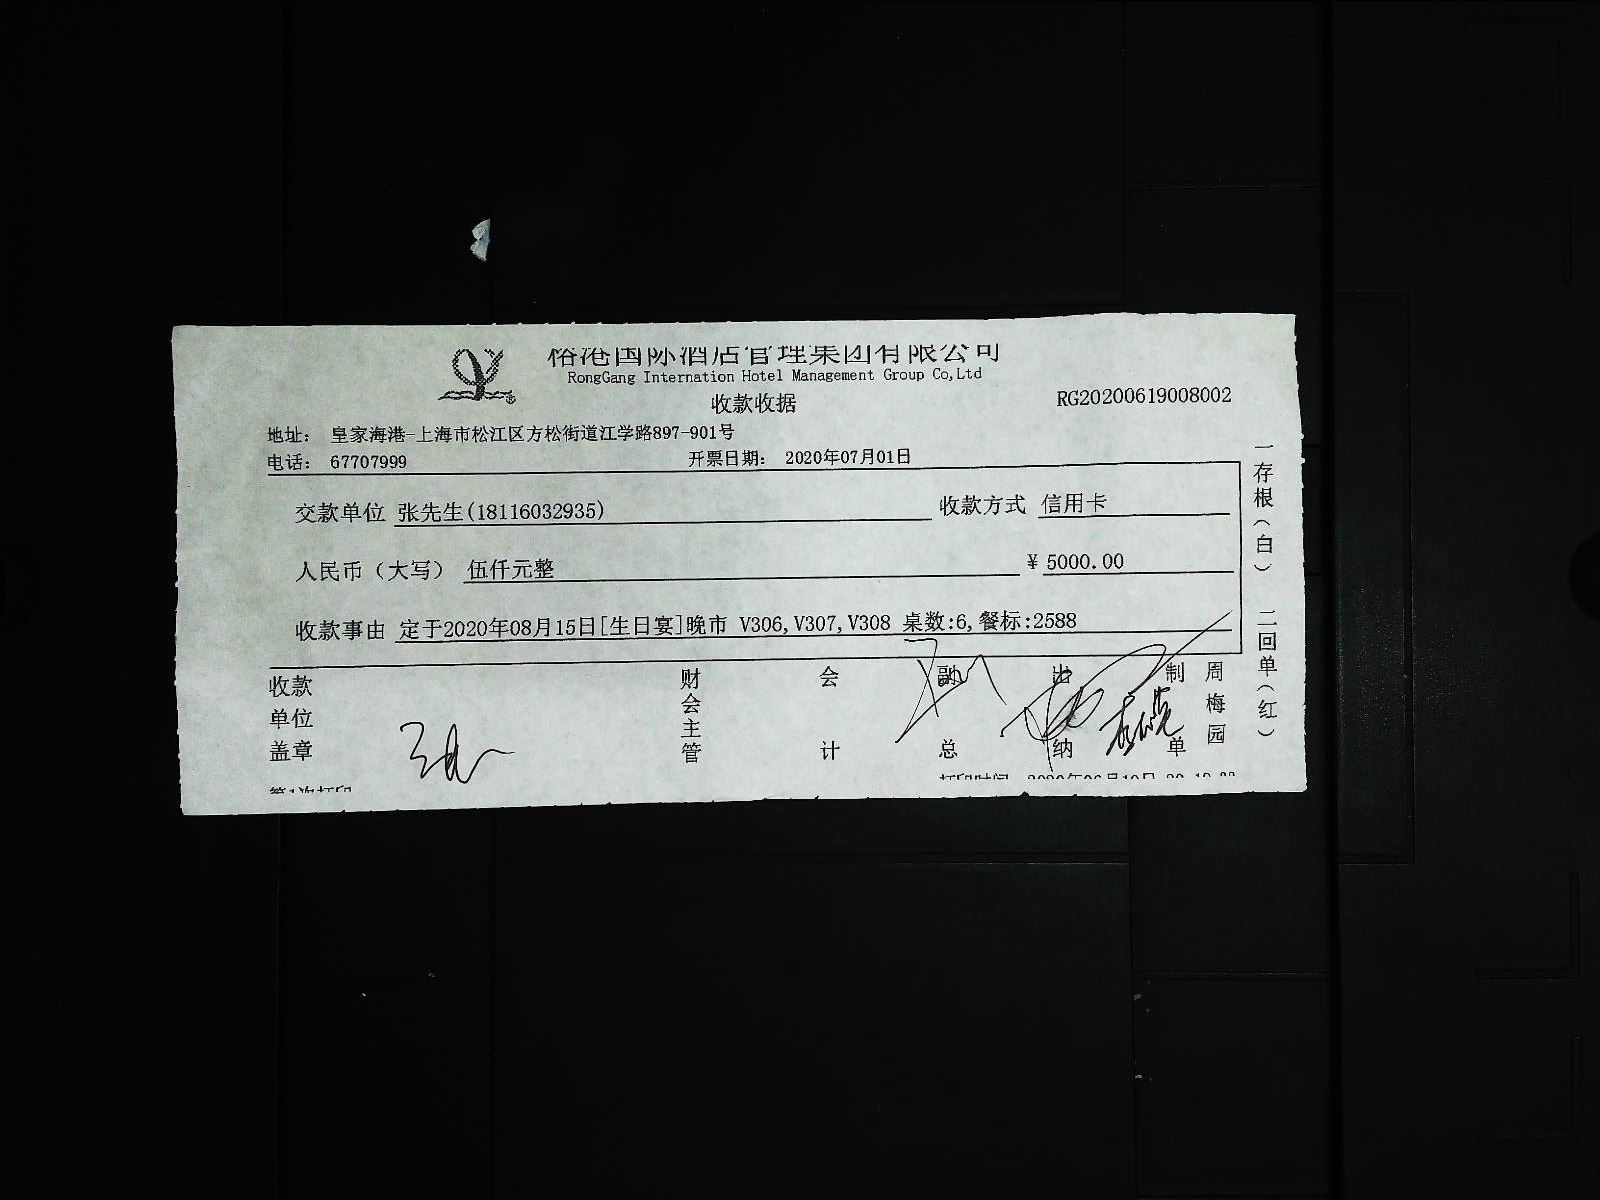 榕港国际酒店管理集团有限公司
RongGang Internation Hotel Management Group Co,Ltd
收款收据
RG20200619008002
地址： 皇家海港-上海市松江区方松街道江学路897-901号
电话： 67707999 开票日期： 2020年07月01日
交款单位 张先生(18116032935) 收款方式 信用卡
人民币（大写） 伍仟元整 ￥5000.00
收款事由 定于2020年08月15日[生日宴]晚市 V306,V307,V308 桌数:6,餐标:2588
收款单位盖章
财会主管
会计
副总
出纳
制单
周梅园
第1次打印
打印时间
一存根（白） 二回单（红）